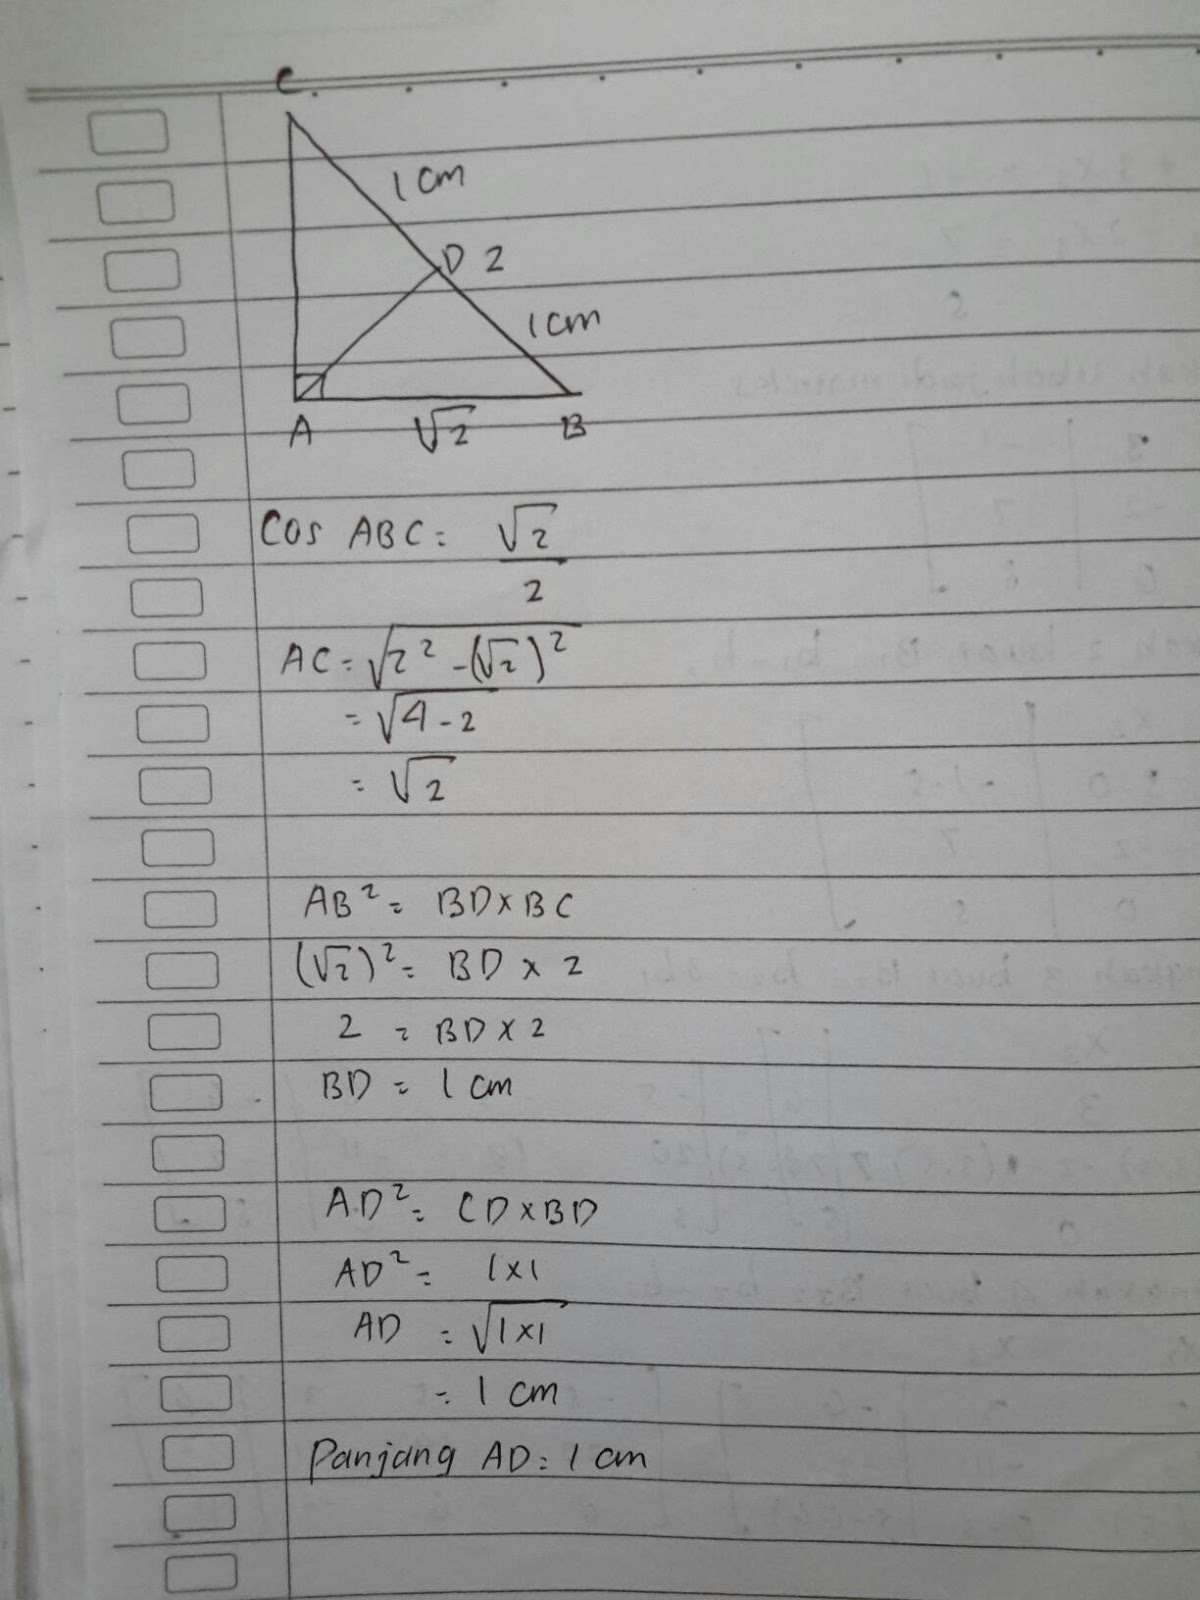 C
1 cm
D 2
1 cm
A √2 B
Cos ABC = √2/2
AC = √(2² - (√2)²)
= √(4 - 2)
= √2
AB² = BD x BC
(√2)² = BD x 2
2 = BD x 2
BD = 1 cm
AD² = CD x BD
AD² = 1x1
AD = √(1x1)
= 1 cm
Panjang AD = 1 cm